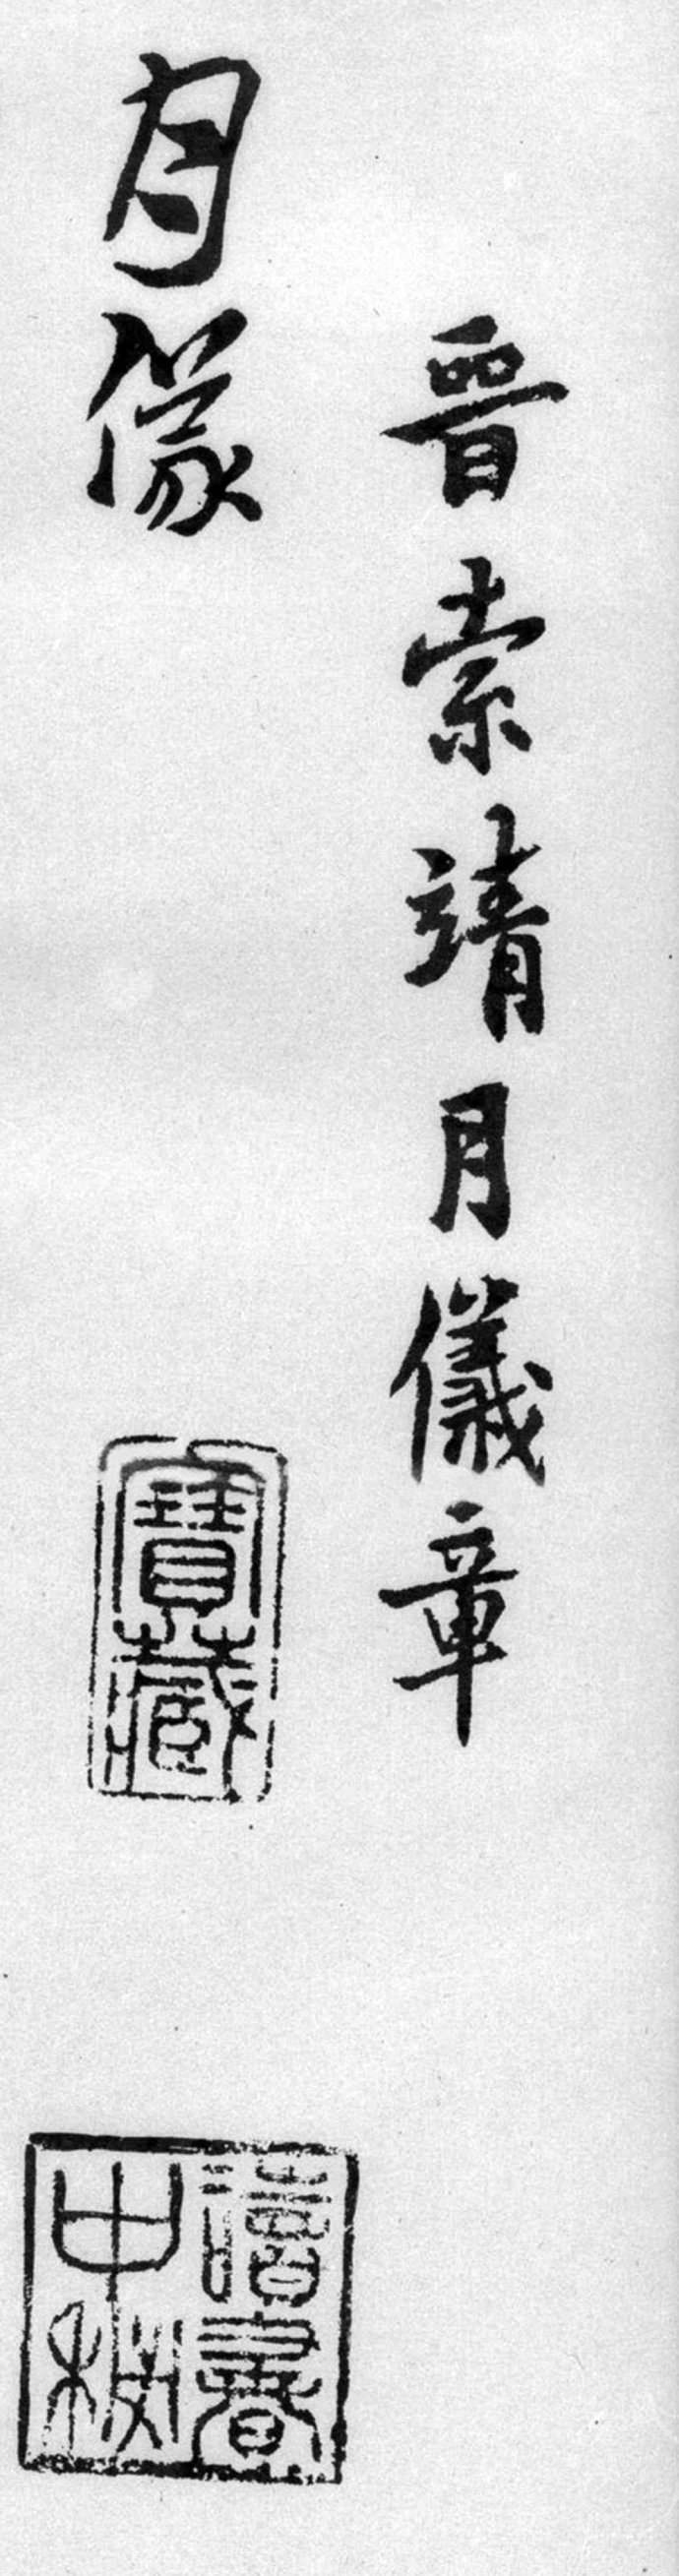 晉索靖月儀章
月儀
寶藏
讀書
中秘